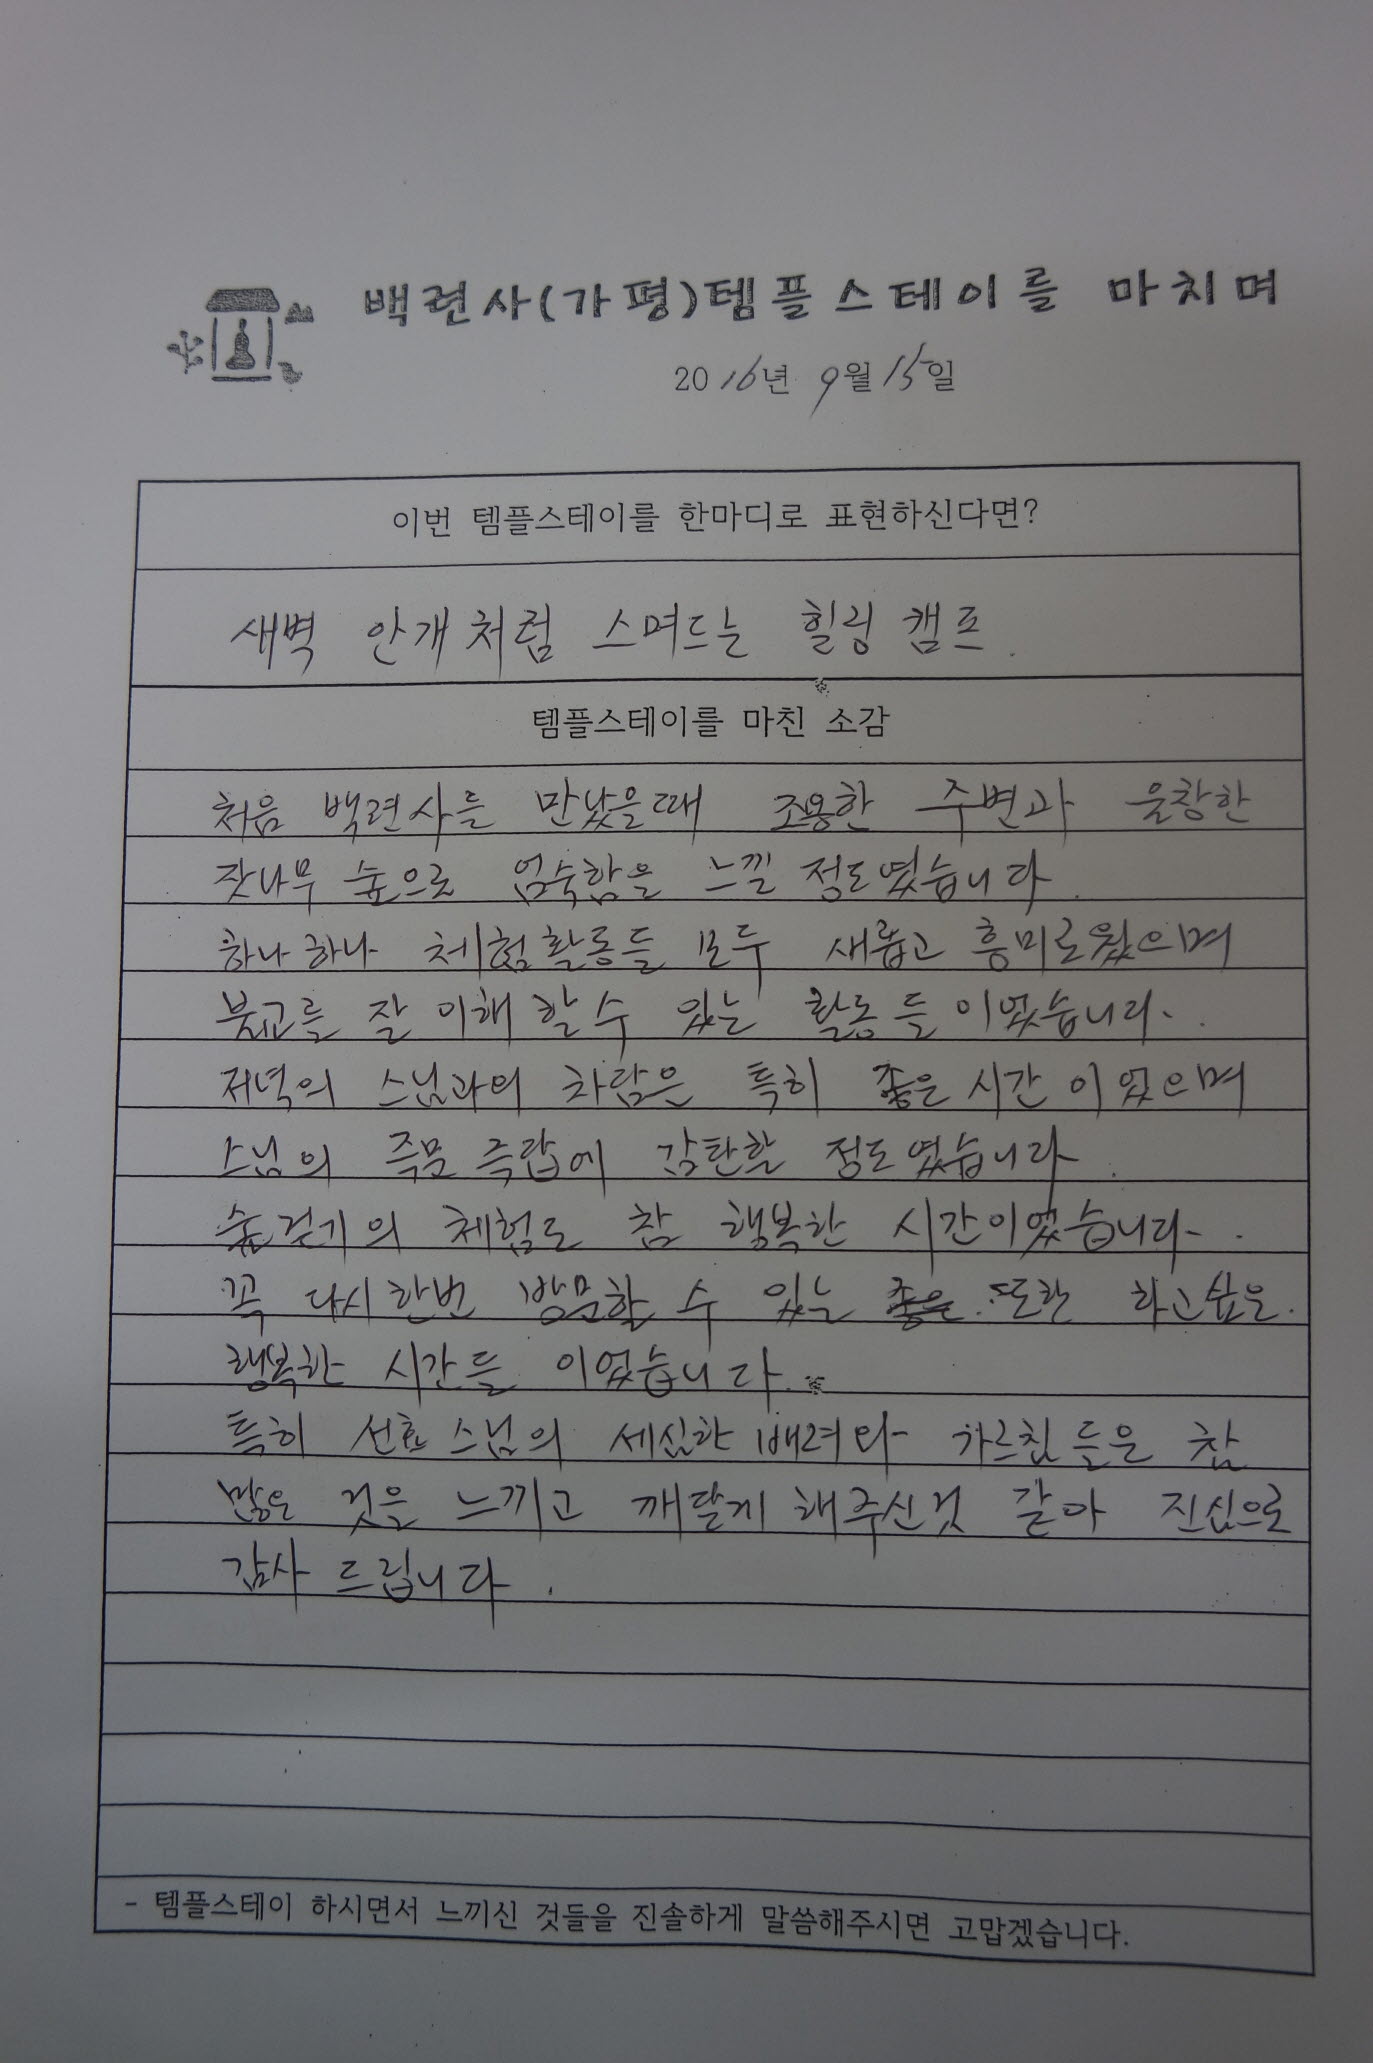 백련사(가평)템플스테이를 마치며
2016년 9월 15일
이번 템플스테이를 한마디로 표현하신다면?
새벽 안개처럼 스며드는 힐링 캠프.
템플스테이를 마친 소감
처음 백련사를 만났을때 조용한 주변과 울창한
잣나무 숲으로 엄숙함을 느낄 정도였습니다.
하나하나 체험활동들 모두 새롭고 흥미로웠으며
불교를 잘 이해 할 수 있는 활동들이었습니다.
저녁의 스님과의 차담은 특히 좋은 시간이었으며
스님의 즉문 즉답에 감탄할 정도였습니다.
숲걷기의 체험도 참 행복한 시간이었습니다.
꼭 다시한번 방문할 수 있는 좋은. 또한 하고싶은.
행복한 시간들 이었습니다.
특히 선효스님의 세심한 배려와 가르침들은 참
많은 것을 느끼고 깨닫게 해주신것 같아 진심으로
감사 드립니다.
- 템플스테이 하시면서 느끼신 것들을 진솔하게 말씀해주시면 고맙겠습니다.